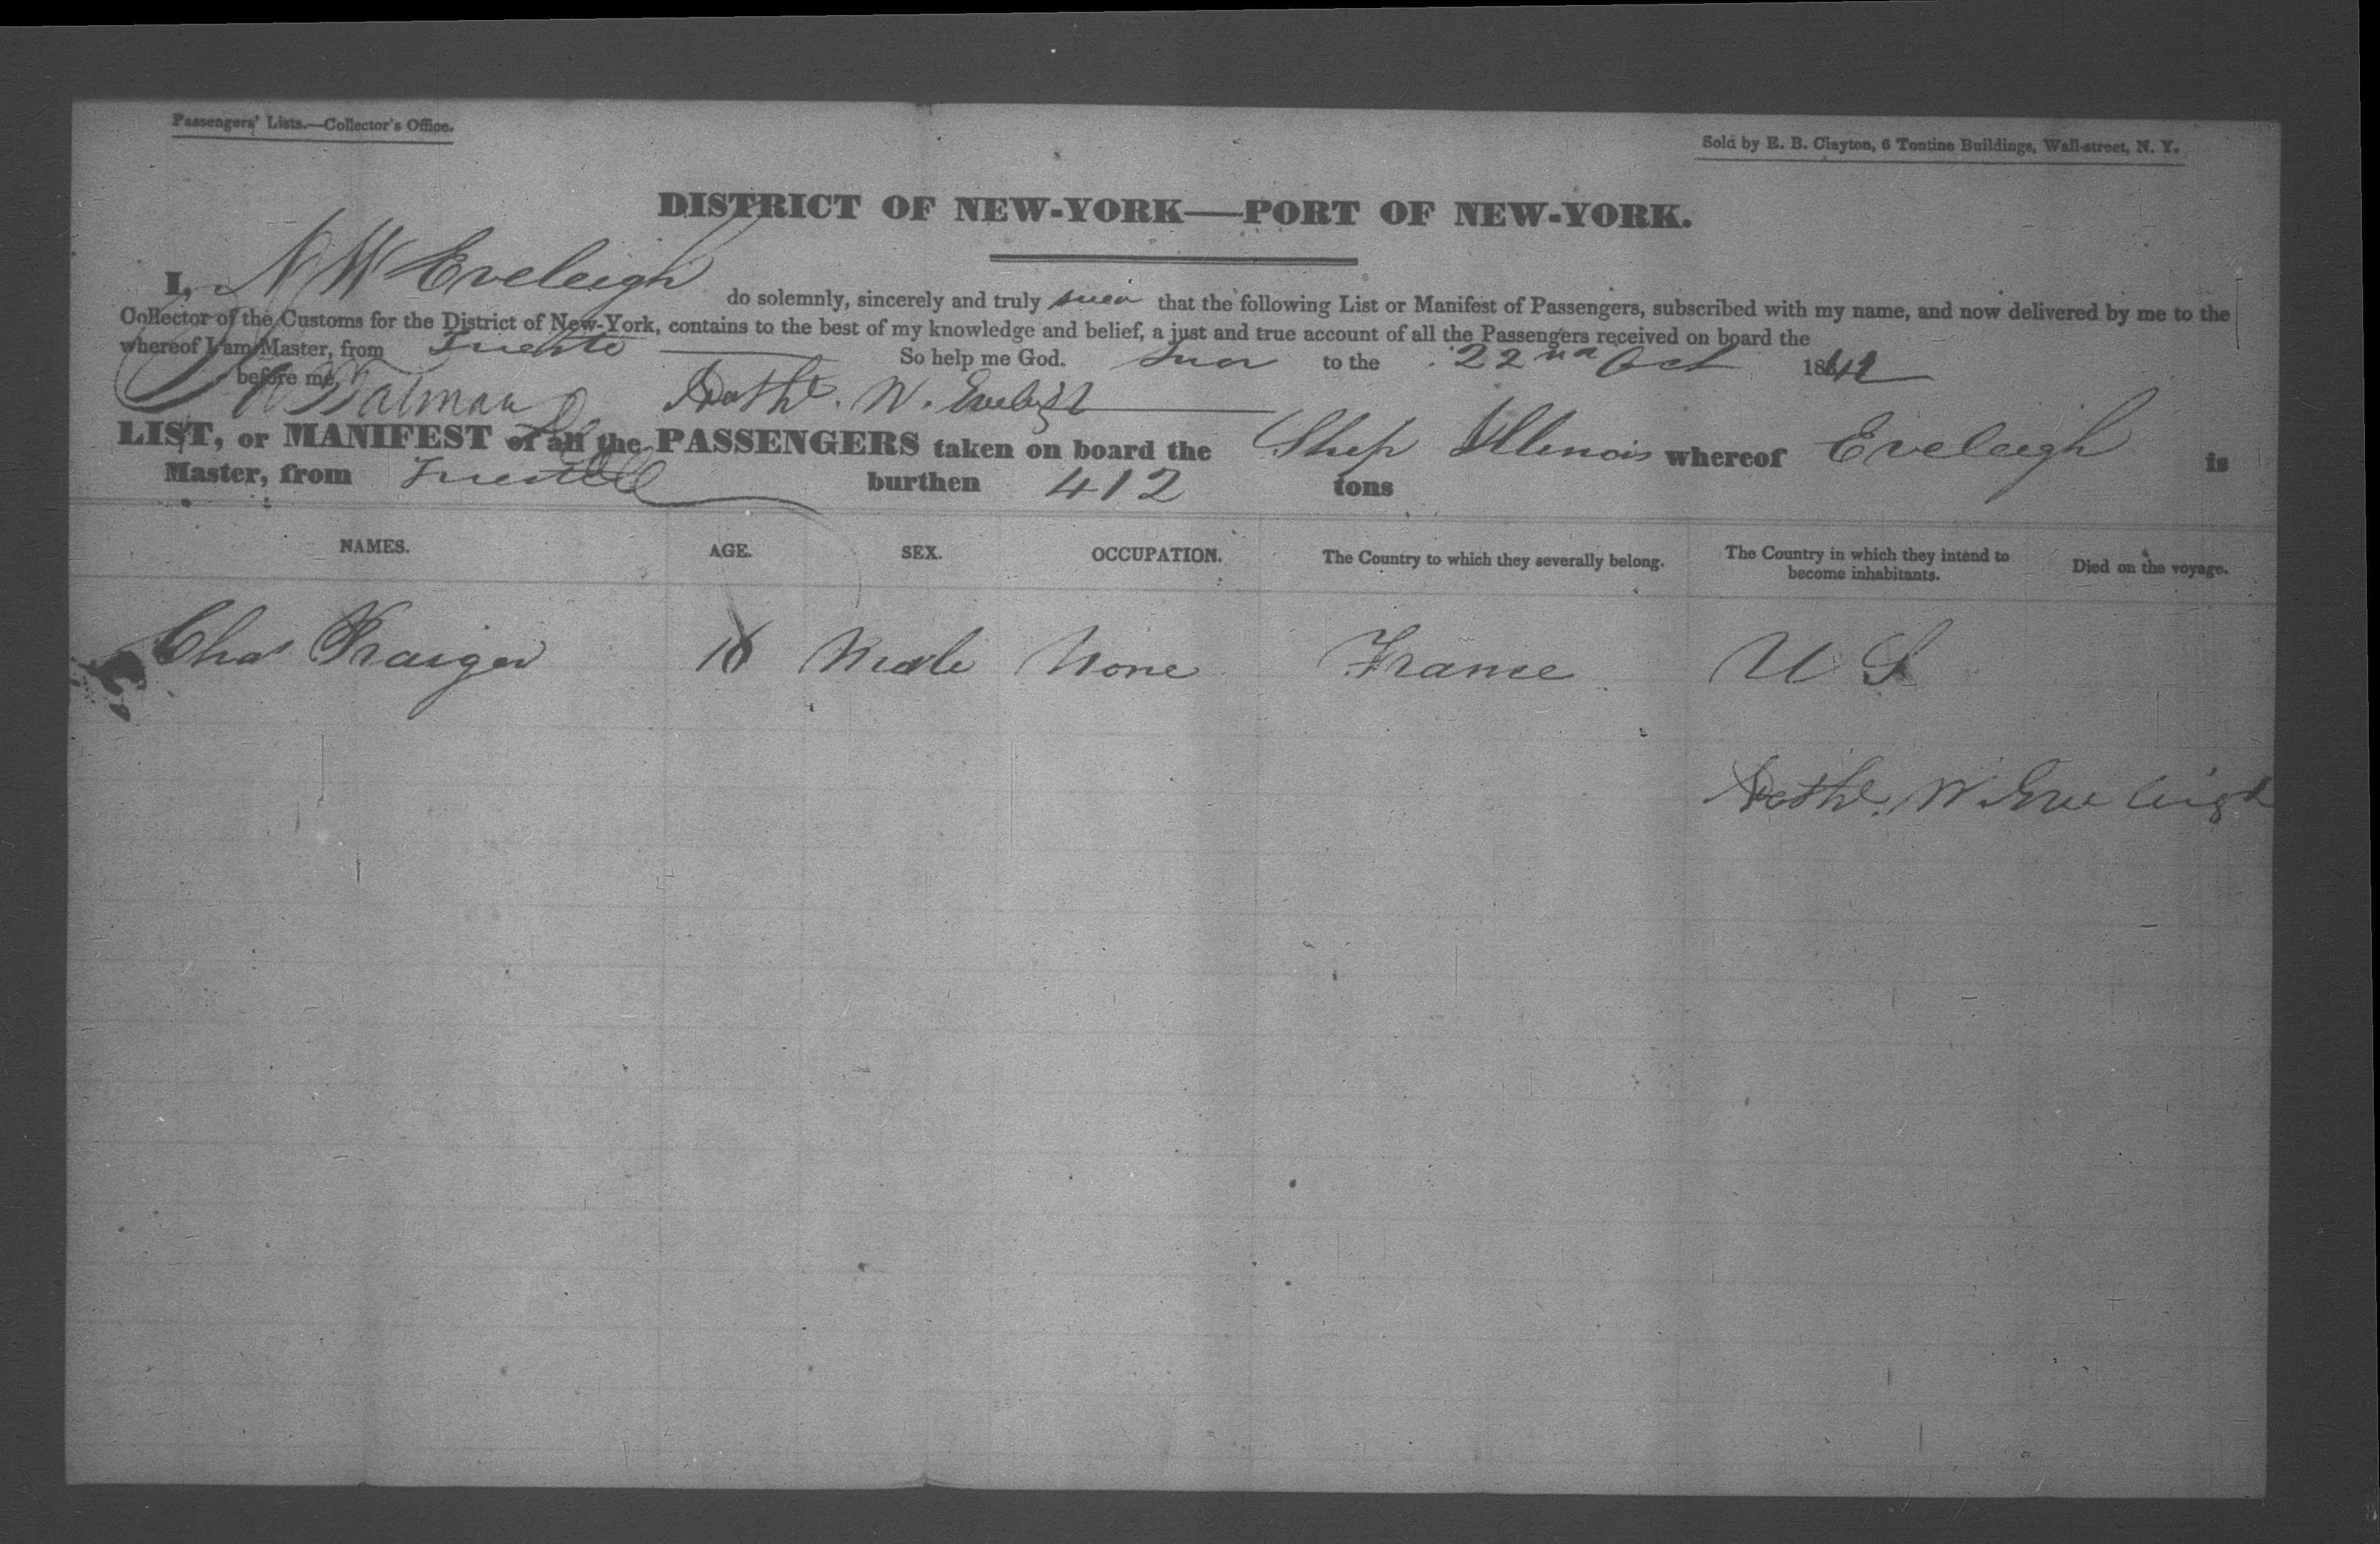 Passengers' Lists.—Collector's Office.
Sold by E. B. Clayton, 6 Tontine Buildings, Wall-street, N. Y.
DISTRICT OF NEW-YORK—PORT OF NEW-YORK.
I, N W Eveleigh do solemnly, sincerely and truly swear that the following List or Manifest of Passengers, subscribed with my name, and now delivered by me to the
Collector of the Customs for the District of New-York, contains to the best of my knowledge and belief, a just and true account of all the Passengers received on board the
whereof I am Master, from Trieste So help me God. to the 22nd Oct 1841
before me, Nathl. W. Eveleigh
LIST, or MANIFEST of all the PASSENGERS taken on board the Ship Illinois whereof Eveleigh is
Master, from Trieste burthen 412 tons
NAMES. AGE. SEX. OCCUPATION. The Country to which they severally belong. The Country in which they intend to become inhabitants. Died on the voyage.
Chas Kraiger 16 Male None France U S
Nathl. W. Eveleigh